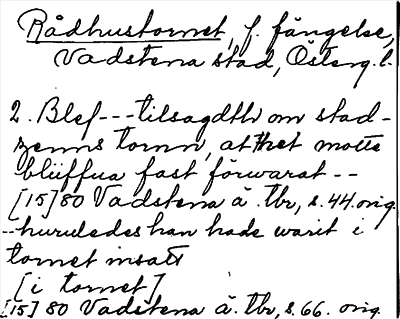 Rådhustornet, f. fängelse,
Vadstena stad, Österg. l.
2. Blef --- tilsagdth om stad-
zenns tornn, at thet motte
blüffua fast förwarat --
[15]80 Vadstena ä. tbr, s. 44. orig.
-- huruledes han hade warit i
tornet insatt
[i tornet]
[15]80 Vadstena ä. tbr, s. 66. orig.